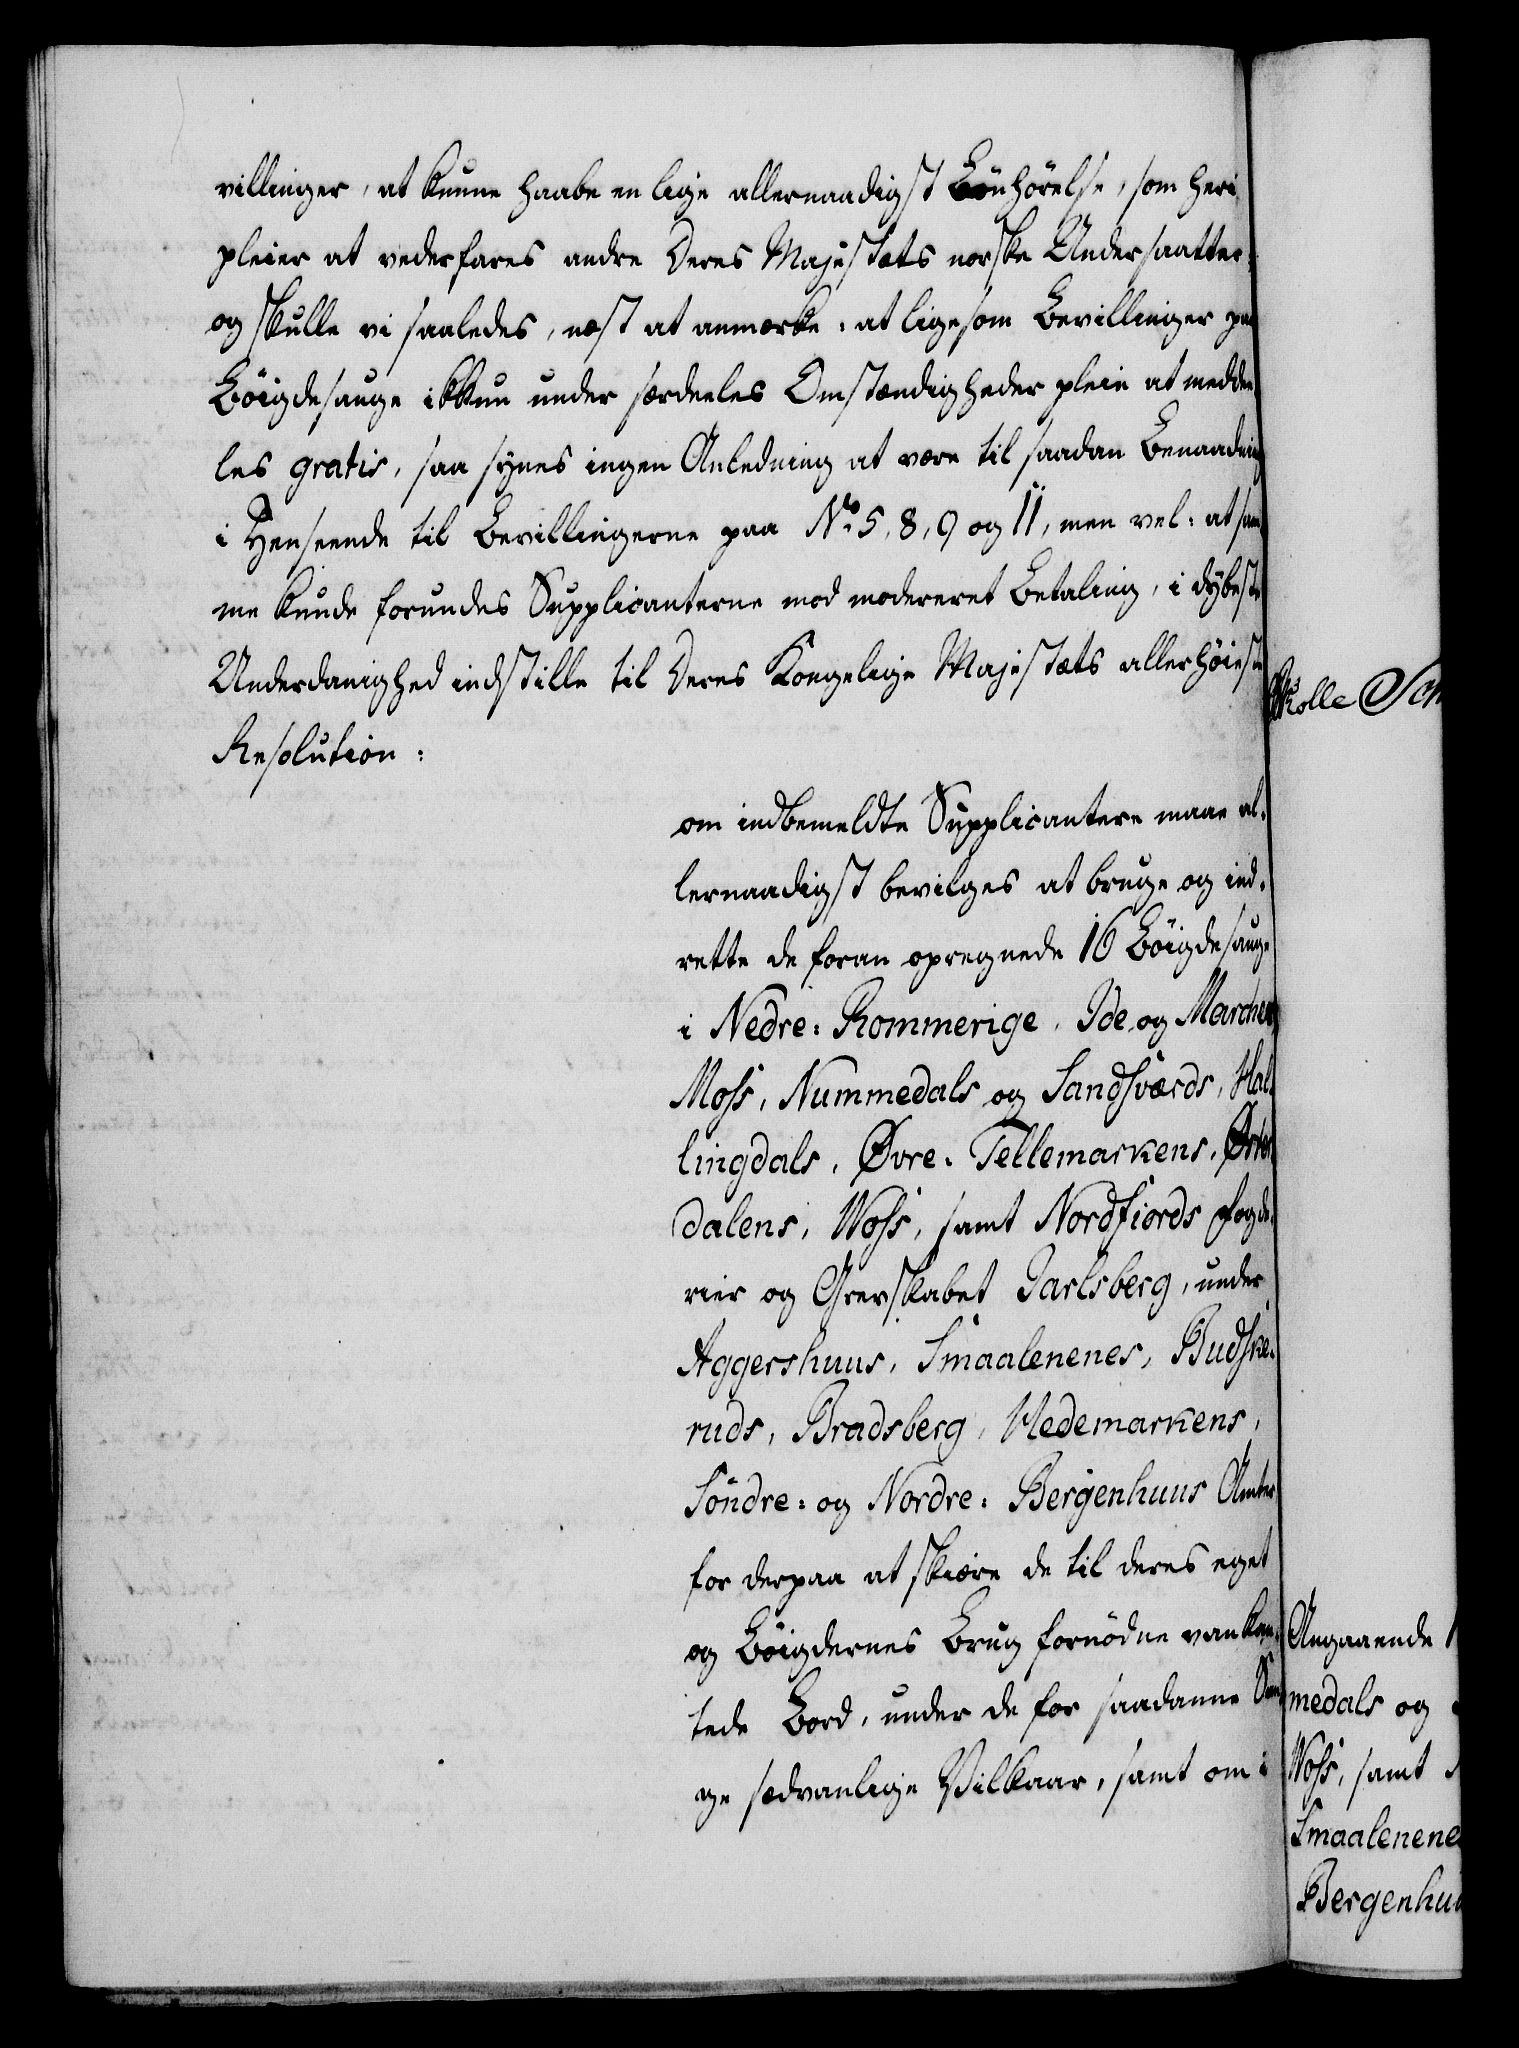 villinger, at kunne haabe en lige allernaadigst Bönhörelse, som heri
pleier at vederfares andre Deres Majestæts norske Undersaatter;
og skulle vi saaledes, næst at anmærke: at ligesom Bevillinger paa
Böigdesauge ikkun under særdeeles Omstændigheder pleie at meddee
les gratis, saa synes ingen Anledning at være til saadan Benaadning
i Henseende til Bevillingerne paa No. 5, 8, 9 og 11, men vel: at sam
me kunde forundes Supplicanterne mod modereret Betaling, i dybeste
Underdanighed indstille til Deres Kongelige Majestæts allerhöieste
Resolution:
om indbemeldte Supplicantere maae al-
lernaadigst bevilges at bruge og ind-
rette de foran opregnede 16 Böigdesauge
i Nedre: Rommerige, Ide og Marchen
Moss, Nummedals og Sandsværds, Hal
lingdals, Øvre: Tellemarkens, Øster
dalens, Woss, samt Nordfiords Fogde-
rier og Grevskabet Jarlsberg, under
Aggershuus, Smaalenenes, Budske-
ruds, Bradsberg, Hedemarkens,
Söndre: og Nordre: Bergenhuus Amter
for derpaa at skiære de til deres eget
og Böigdernes Brug fornödne vankan-
tede Bord, under de for saadanne Sau
ge sædvanlige Vilkaar, samt om i
Skolle
Angaaende
medals og
Woss, samt
Smaalenene
Bergenhuu